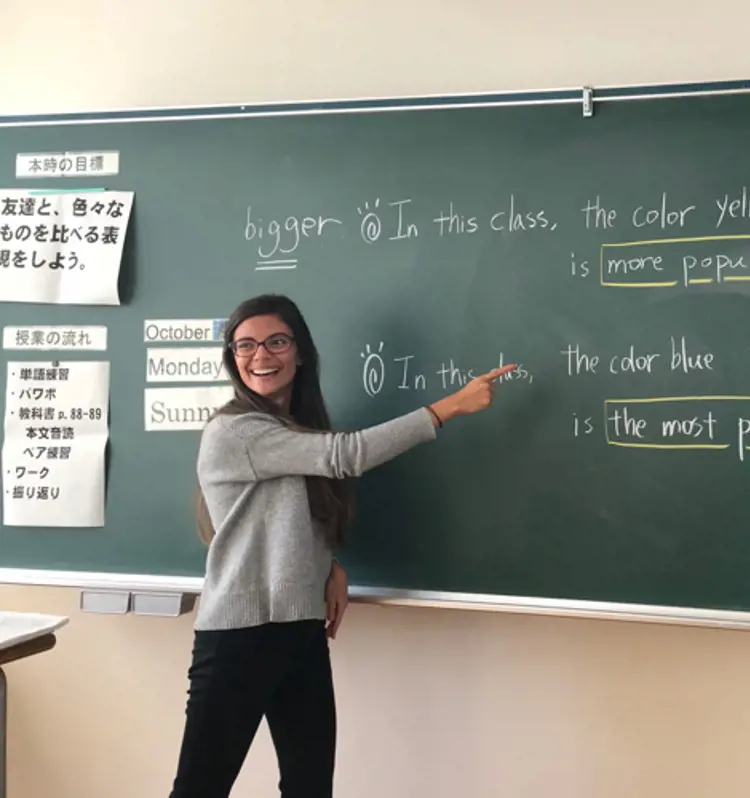 本時の目標
友達と、色々な
ものを比べる表
現をしよう。
授業の流れ
・単語練習
・パワポ
・教科書 p.88-89
本文音読
ペア練習
・ワーク
・振り返り
October
Monday
bigger
In this class, the color
is more
In this class, the color blue
is the most